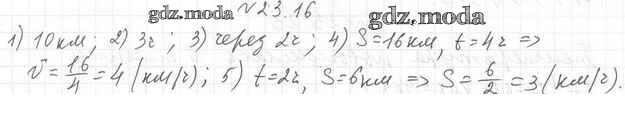 gdz.moda №23.16 gdz.moda
1) 10 км; 2) 3ч; 3) через 2ч; 4) S=16 км, t=4ч =>
v̄ = 16/4 = 4 (км/ч); 5) t=2ч, S=6 км => S = 6/2 = 3 (км/ч).